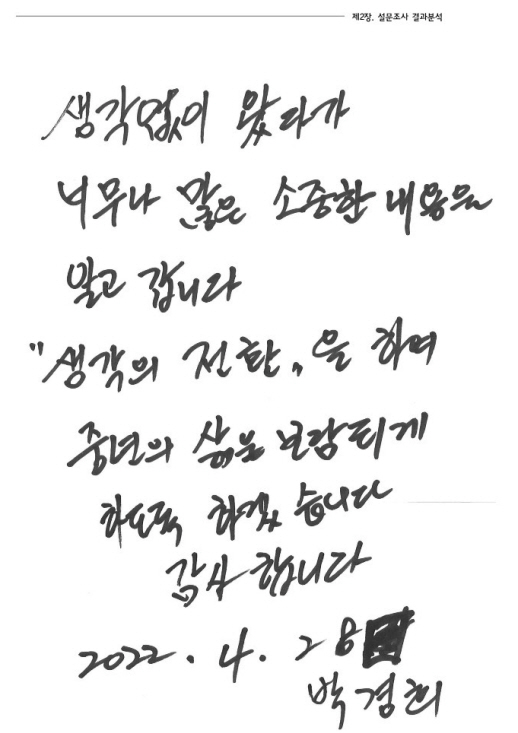 제2장. 설문조사 결과분석
생각없이 왔다가
너무나 많은 소중한 내용을
알고 갑니다
"생각의 전환"을 하여
중년의 삶을 보람되게
하도록 하겠습니다
감사합니다
2022. 4. 28
박경희